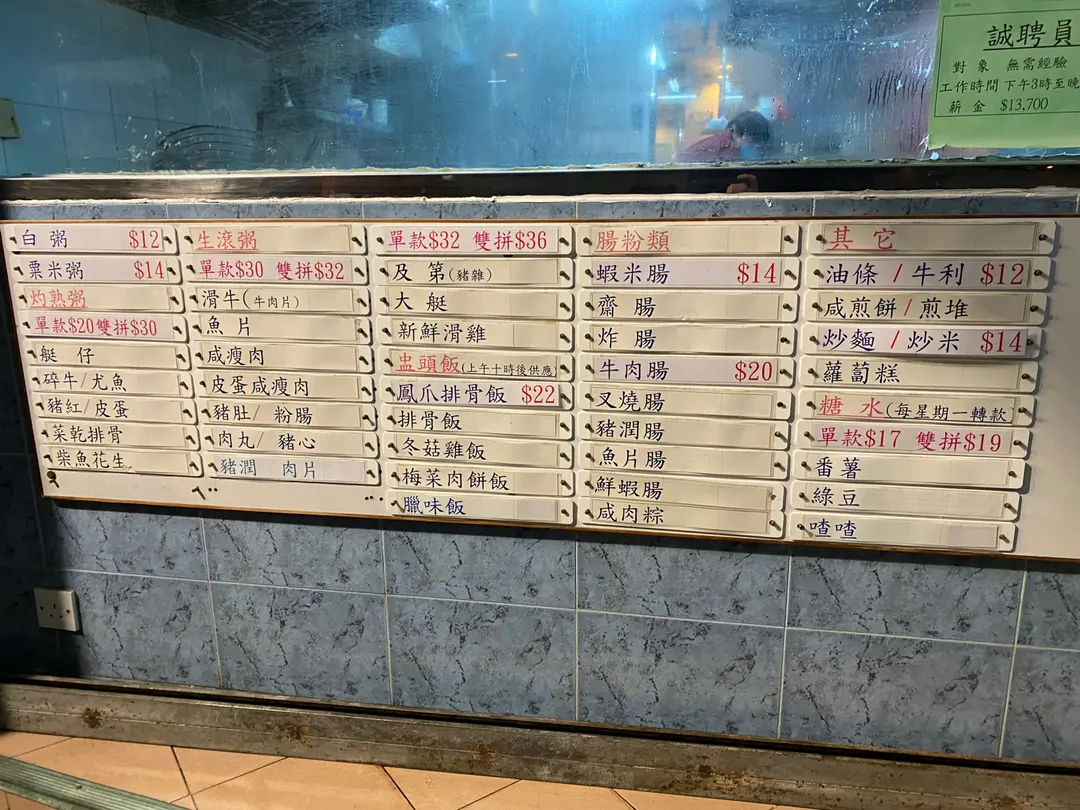 誠聘員
對象 無需經驗
工作時間 下午3時至晚
薪金 $13,700
白粥 $12
粟米粥 $14
灼熟粥
單款$20雙拼$30
艇仔
碎牛/尤魚
豬紅/皮蛋
菜乾排骨
柴魚花生
生滾粥
單款$30 雙拼$32
滑牛(牛肉片)
魚片
咸瘦肉
皮蛋咸瘦肉
豬肚/粉腸
肉丸/豬心
豬潤 肉片
單款$32 雙拼$36
及第(豬雜)
大艇
新鮮滑雞
盅頭飯(上午十時後供應)
鳳爪排骨飯 $22
排骨飯
冬菇雞飯
梅菜肉餅飯
臘味飯
腸粉類
蝦米腸 $14
齋腸
炸腸
牛肉腸 $20
叉燒腸
豬潤腸
魚片腸
鮮蝦腸
咸肉粽
其它
油條/牛利 $12
咸煎餅/煎堆
炒麵/炒米 $14
蘿蔔糕
糖水(每星期一轉款)
單款$17 雙拼$19
番薯
綠豆
喳喳